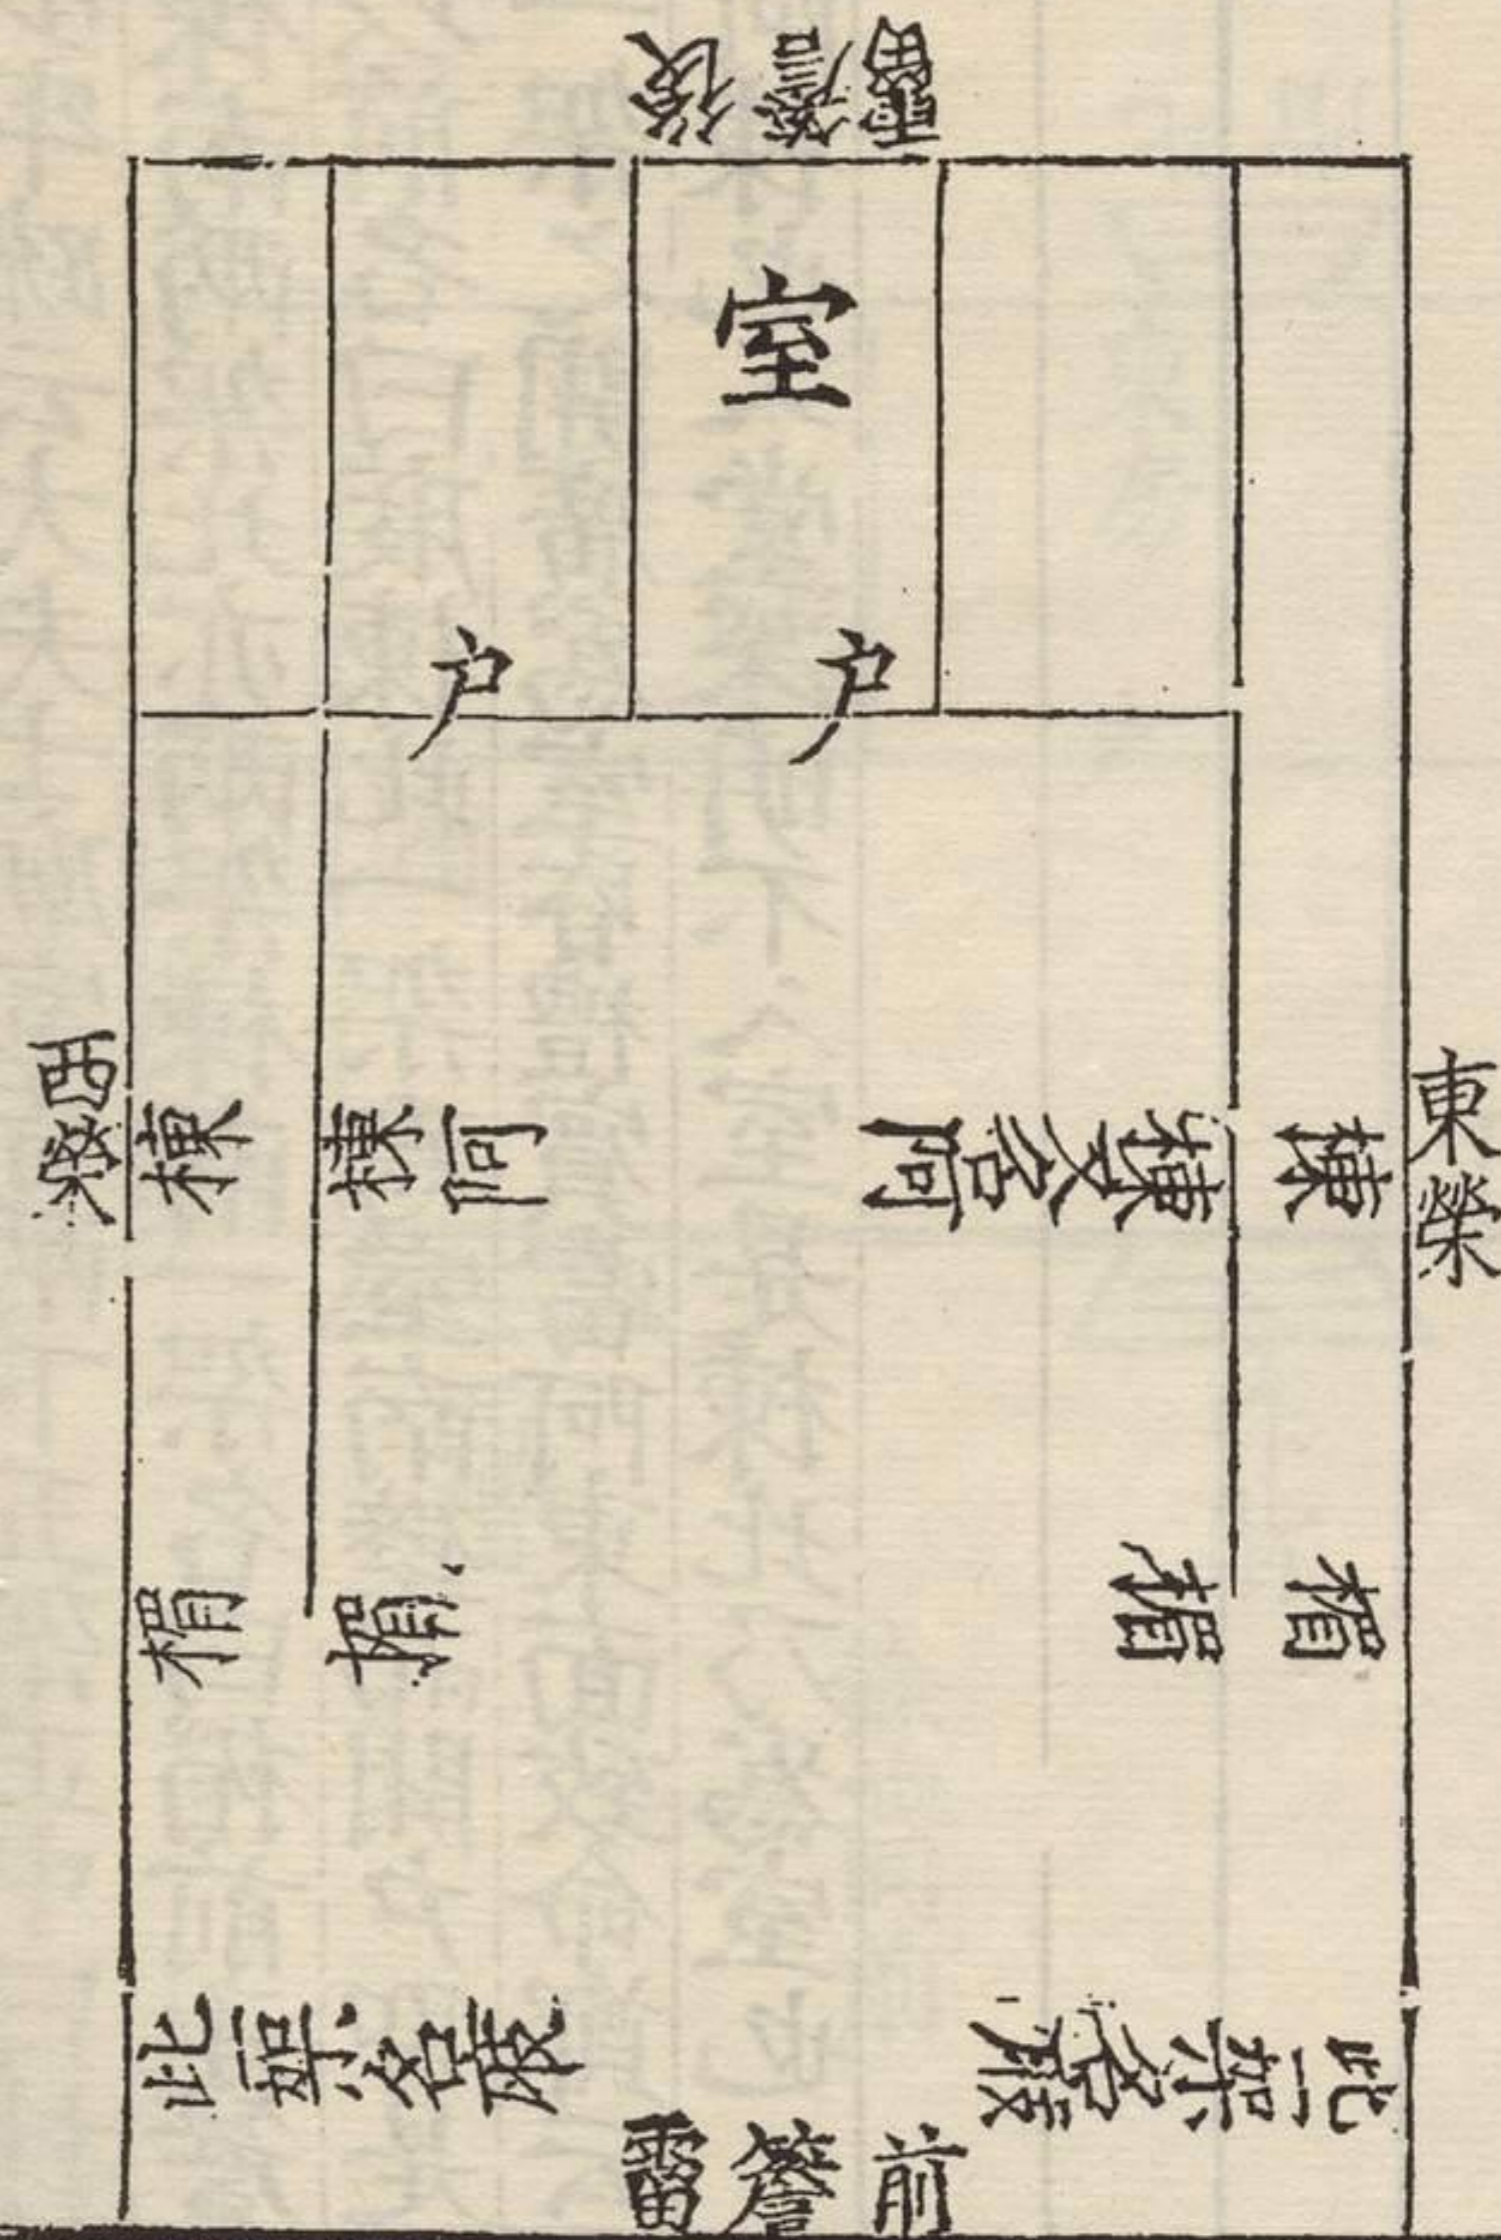 後簷霤
室
户
户
東榮
棟
棟又名阿
棟阿
棟
西榮
楣
楣
楣
楣
此一架名庪
此一架名庪
前簷霤